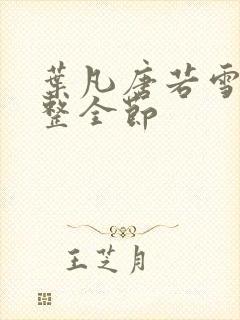 葉凡唐若雪
整全節
王芝月